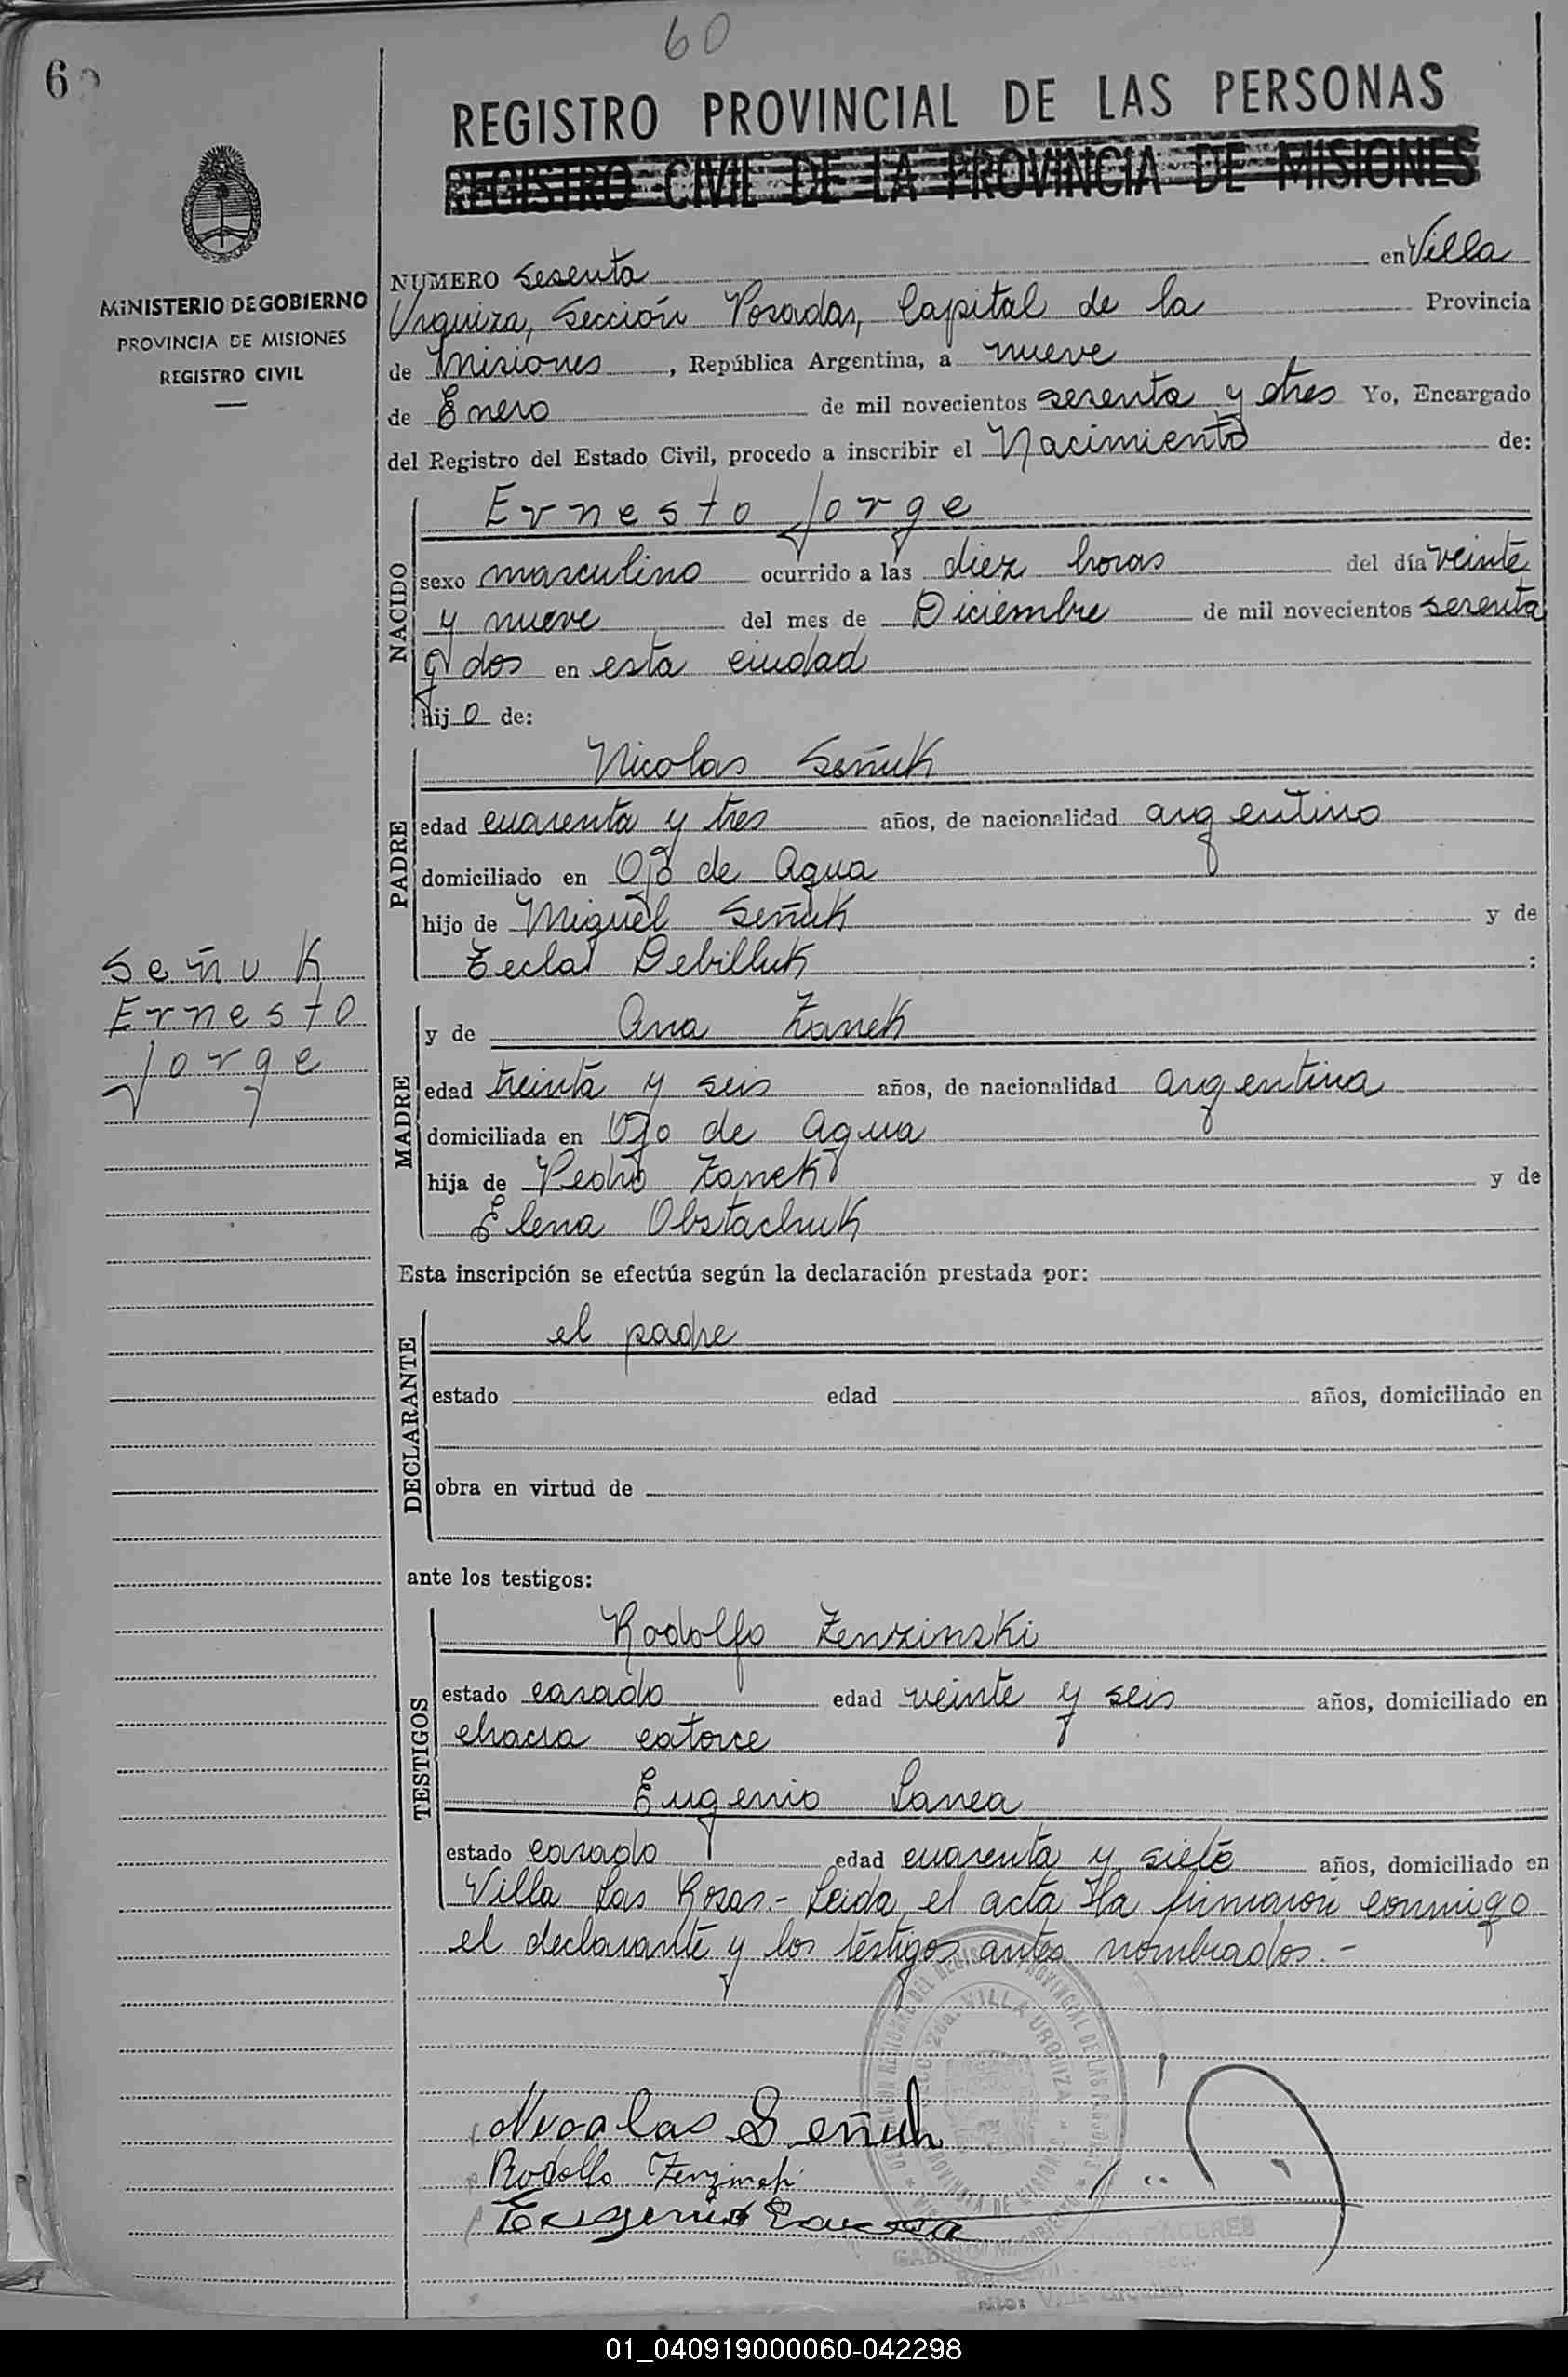 60
60
REGISTRO PROVINCIAL DE LAS PERSONAS
REGISTRO CIVIL DE LA PROVINCIA DE MISIONES
MINISTERIO DE GOBIERNO
PROVINCIA DE MISIONES
REGISTRO CIVIL
NUMERO sesenta en Villa
Urquiza, Sección Posadas, Capital de la Provincia
de Misiones, República Argentina, a nueve
de Enero de mil novecientos setenta y tres Yo, Encargado
del Registro del Estado Civil, procedo a inscribir el Nacimiento de:
NACIDO
Ernesto Jorge
sexo masculino ocurrido a las diez horas del día veinte
y nueve del mes de Diciembre de mil novecientos setenta
y dos en esta ciudad
hijo de:
PADRE
Nicolas Señuk
edad cuarenta y tres años, de nacionalidad argentino
domiciliado en Ojo de Agua
hijo de Miguel Señuk y de
Tecla Debilluk :
Señuk
Ernesto
Jorge
MADRE
y de Ana Zanek
edad treinta y seis años, de nacionalidad argentina
domiciliada en Ojo de Agua
hija de Pedro Zanek y de
Elena Obstachuk
Esta inscripción se efectúa según la declaración prestada por:
DECLARANTE
el padre
estado edad años, domiciliado en
obra en virtud de
ante los testigos:
TESTIGOS
Rodolfo Zenzinski
estado casado edad veinte y seis años, domiciliado en
chacra catorce
Eugenio Lanea
estado casado edad cuarenta y siete años, domiciliado en
Villa Las Rosas.- Leida el acta la firmaron conmigo
el declarante y los testigos antes nombrados.-
Nicolas Señuk
Rodolfo Zenzinski
Eugenio
VILLA URQUIZA
PROVINCIA DE MISIONES
CACERES
01_040919000060-042298